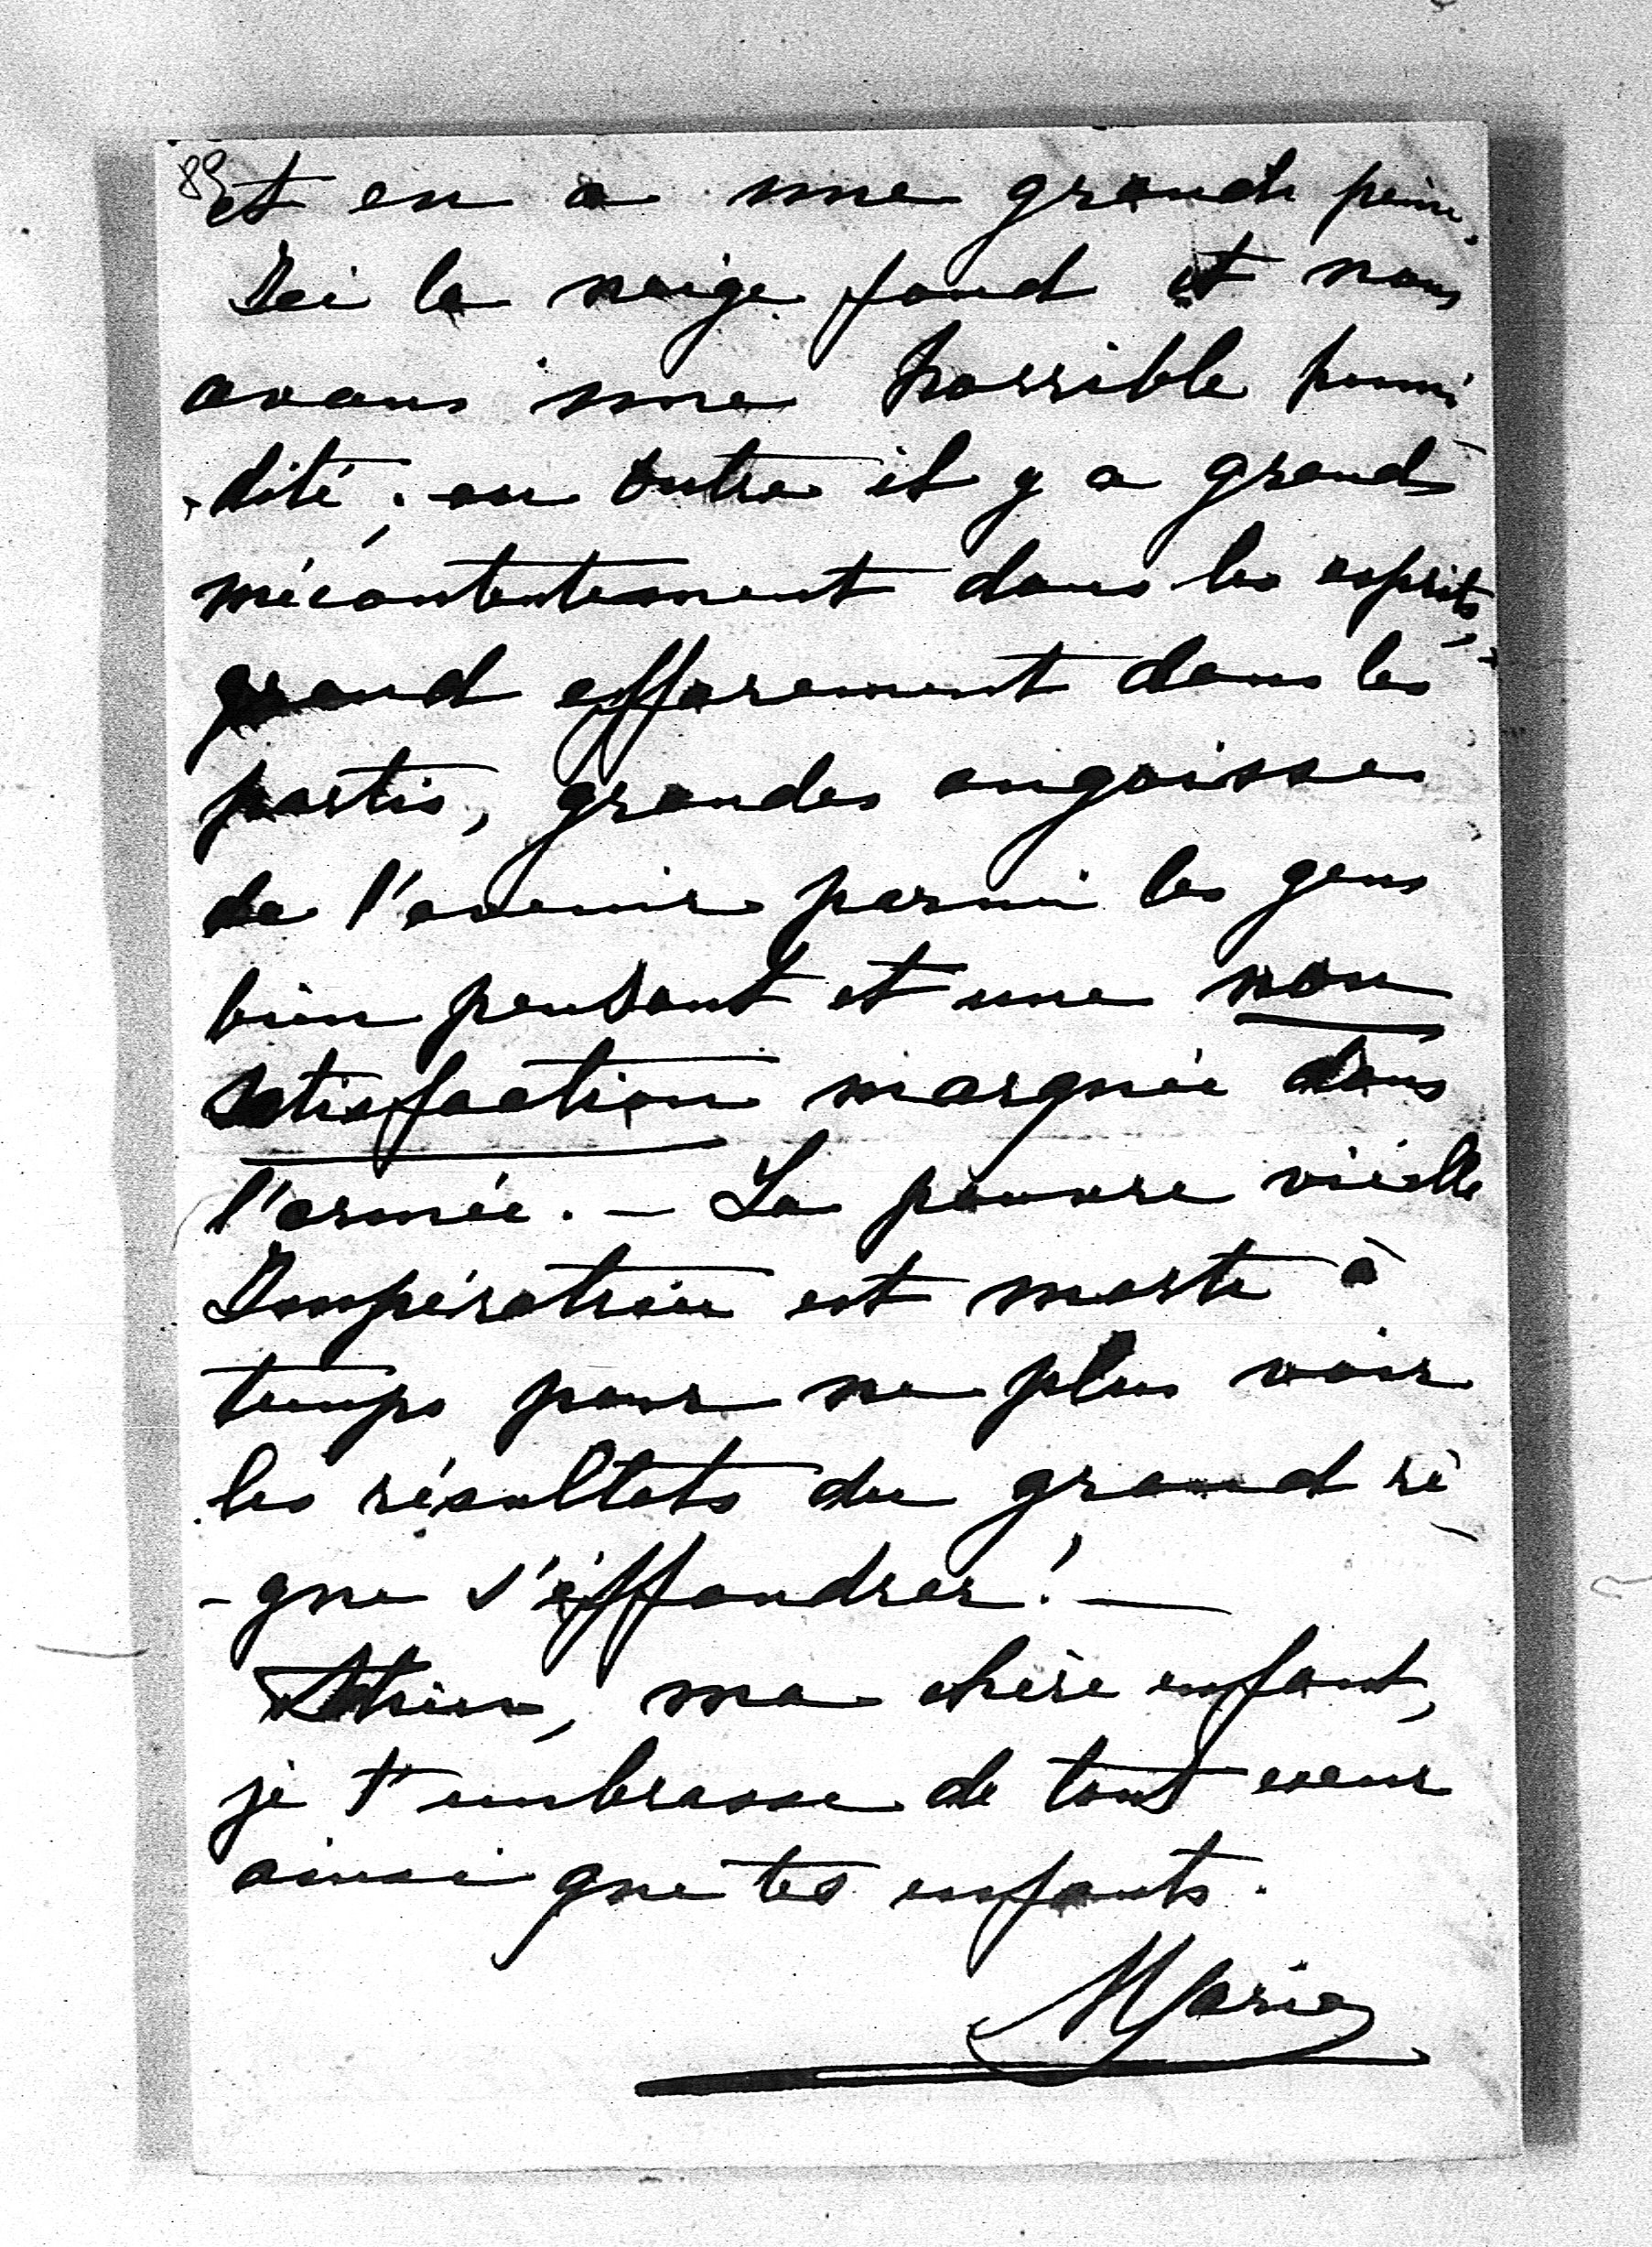 89
et en a une grande peine.
Ici la neige fond et nous
avons une horrible humi
-dité; en outre il y a grand
mécontentement dans les esprits,
grand effarement dans les
partis, grandes angoisses
de l'avenir parmi les gens
bien pensant et une non
satisfaction marquée dans
l'armée. — La pauvre vieille
Impératrice est morte à
temps pour ne plus voir
les résultats du grand rè
-gne s'éffondrer! —
ma chère enfant,
je t'embrasse de tout cœur
ainsi que tes enfants.
Marie